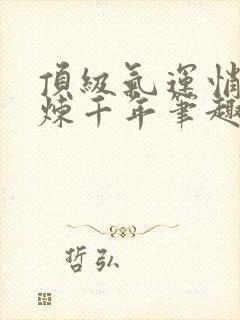 頂級氣運悄
煉千年筆趣
哲弘